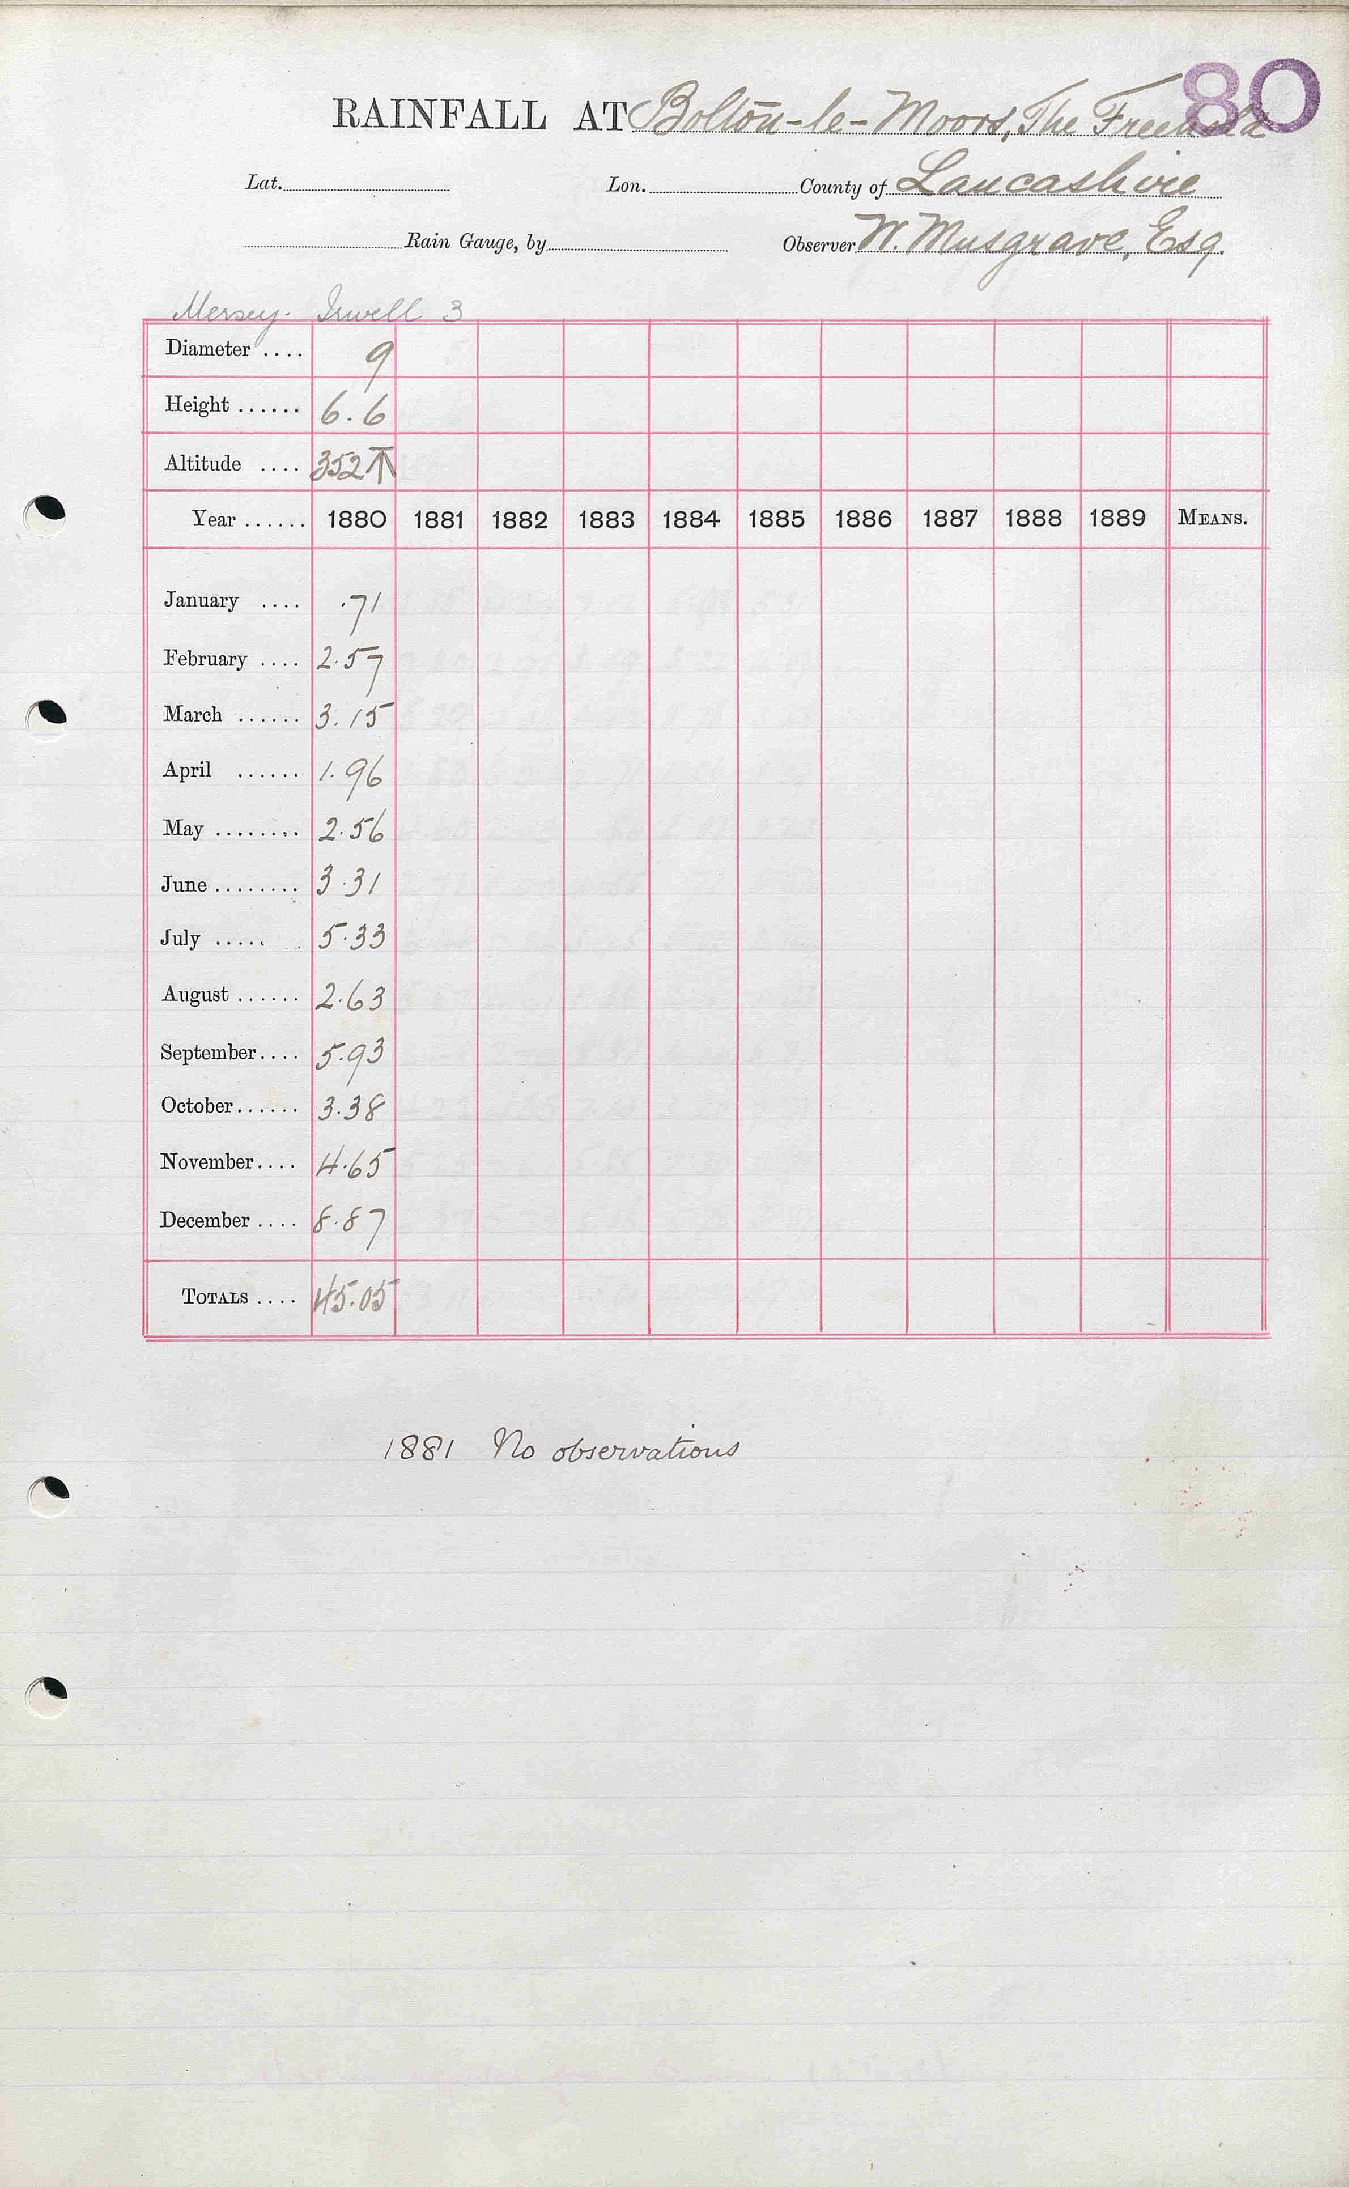 80
RAINFALL AT Bolton-le-Moors, The Freehold
Lat. Lon. County of Lancashire
Rain Gauge, by Observer W. Musgrave, Esq.
Mersey. Irwell 3
Diameter .... 9
Height ...... 6.6
Altitude .... 352
Year ...... 1880 1881 1882 1883 1884 1885 1886 1887 1888 1889 MEANS.
January .... .71
February .... 2.57
March ...... 3.15
April ...... 1.96
May ........ 2.56
June ........ 3.31
July ..... 5.33
August ...... 2.63
September.... 5.93
October...... 3.38
November.... 4.65
December .... 8.87
TOTALS .... 45.05
1881 No observations